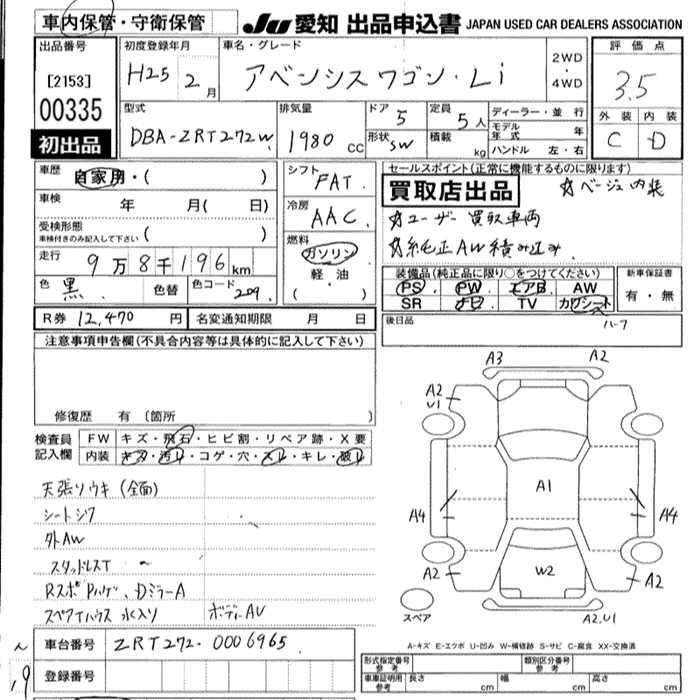 車内保管・守衛保管
JU 愛知 出品申込書 JAPAN USED CAR DEALERS ASSOCIATION
出品番号
[2153]
00335
初出品
初度登録年月
H25 2月
車名・グレード
アベンシスワゴン・Li
2WD
・
4WD
評価点
3.5
外装 内装
C D
型式
DBA-ZRT272W
排気量
1980 CC
ドア 5
形状 SW
定員 5人
積載 kg
ディーラー・並行
モデル年式 年
ハンドル 左・右
車歴
自家用・( )
車検 年 月( 日)
受検形態
車検付きのみ記入して下さい ( )
走行 9万8千196km
色 黒 色替 色コード 209
シフト
FAT
冷房
AAC
燃料
ガソリン
軽・油
( )
セールスポイント(正常に機能するものに限ります)
買取店出品 ☆ベージュ内装
☆ユーザー買取車両
☆純正AW積み込み
装備品(純正品に限り○をつけてください)
PS PW エアB AW
SR ナビ TV カワシート
新車保証書
有・無
R券 12,470円 名変通知期限 月 日
後日品
ハーフ
注意事項申告欄(不具合内容等は具体的に記入して下さい)
修復歴 有〔箇所
検査員記入欄
FW キズ・飛石・ヒビ割・リペア跡・X要
内装 キズ・汚レ・コゲ・穴・スレ・キレ・破レ
天張リウキ(全面)
シートシワ
外AW
スタッドレスT 〜
Dミラー A
水入り ボディーAU
A3 A2
A2
U1
A2
A1
A4 A4
A2 W2 A2
スペア A2,U1
A-キズ E-エクボ U-凹み W-補修跡 S-サビ C-腐食 XX-交換済
車台番号 ZRT272-0006965
登録番号
形式指定番号 参考
類別区分番号 参考
車庫証明用 参考 長さ cm 幅 cm 高さ cm